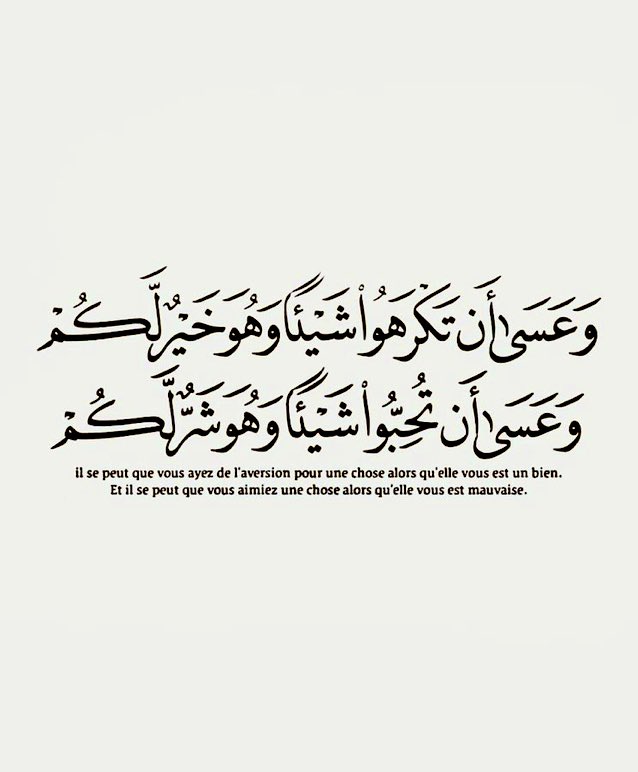 وَعَسَىٰٓ أَن تَكْرَهُوا۟ شَيْـًٔا وَهُوَ خَيْرٌ لَّكُمْ
وَعَسَىٰٓ أَن تُحِبُّوا۟ شَيْـًٔا وَهُوَ شَرٌّ لَّكُمْ
il se peut que vous ayez de l'aversion pour une chose alors qu'elle vous est un bien.
Et il se peut que vous aimiez une chose alors qu'elle vous est mauvaise.